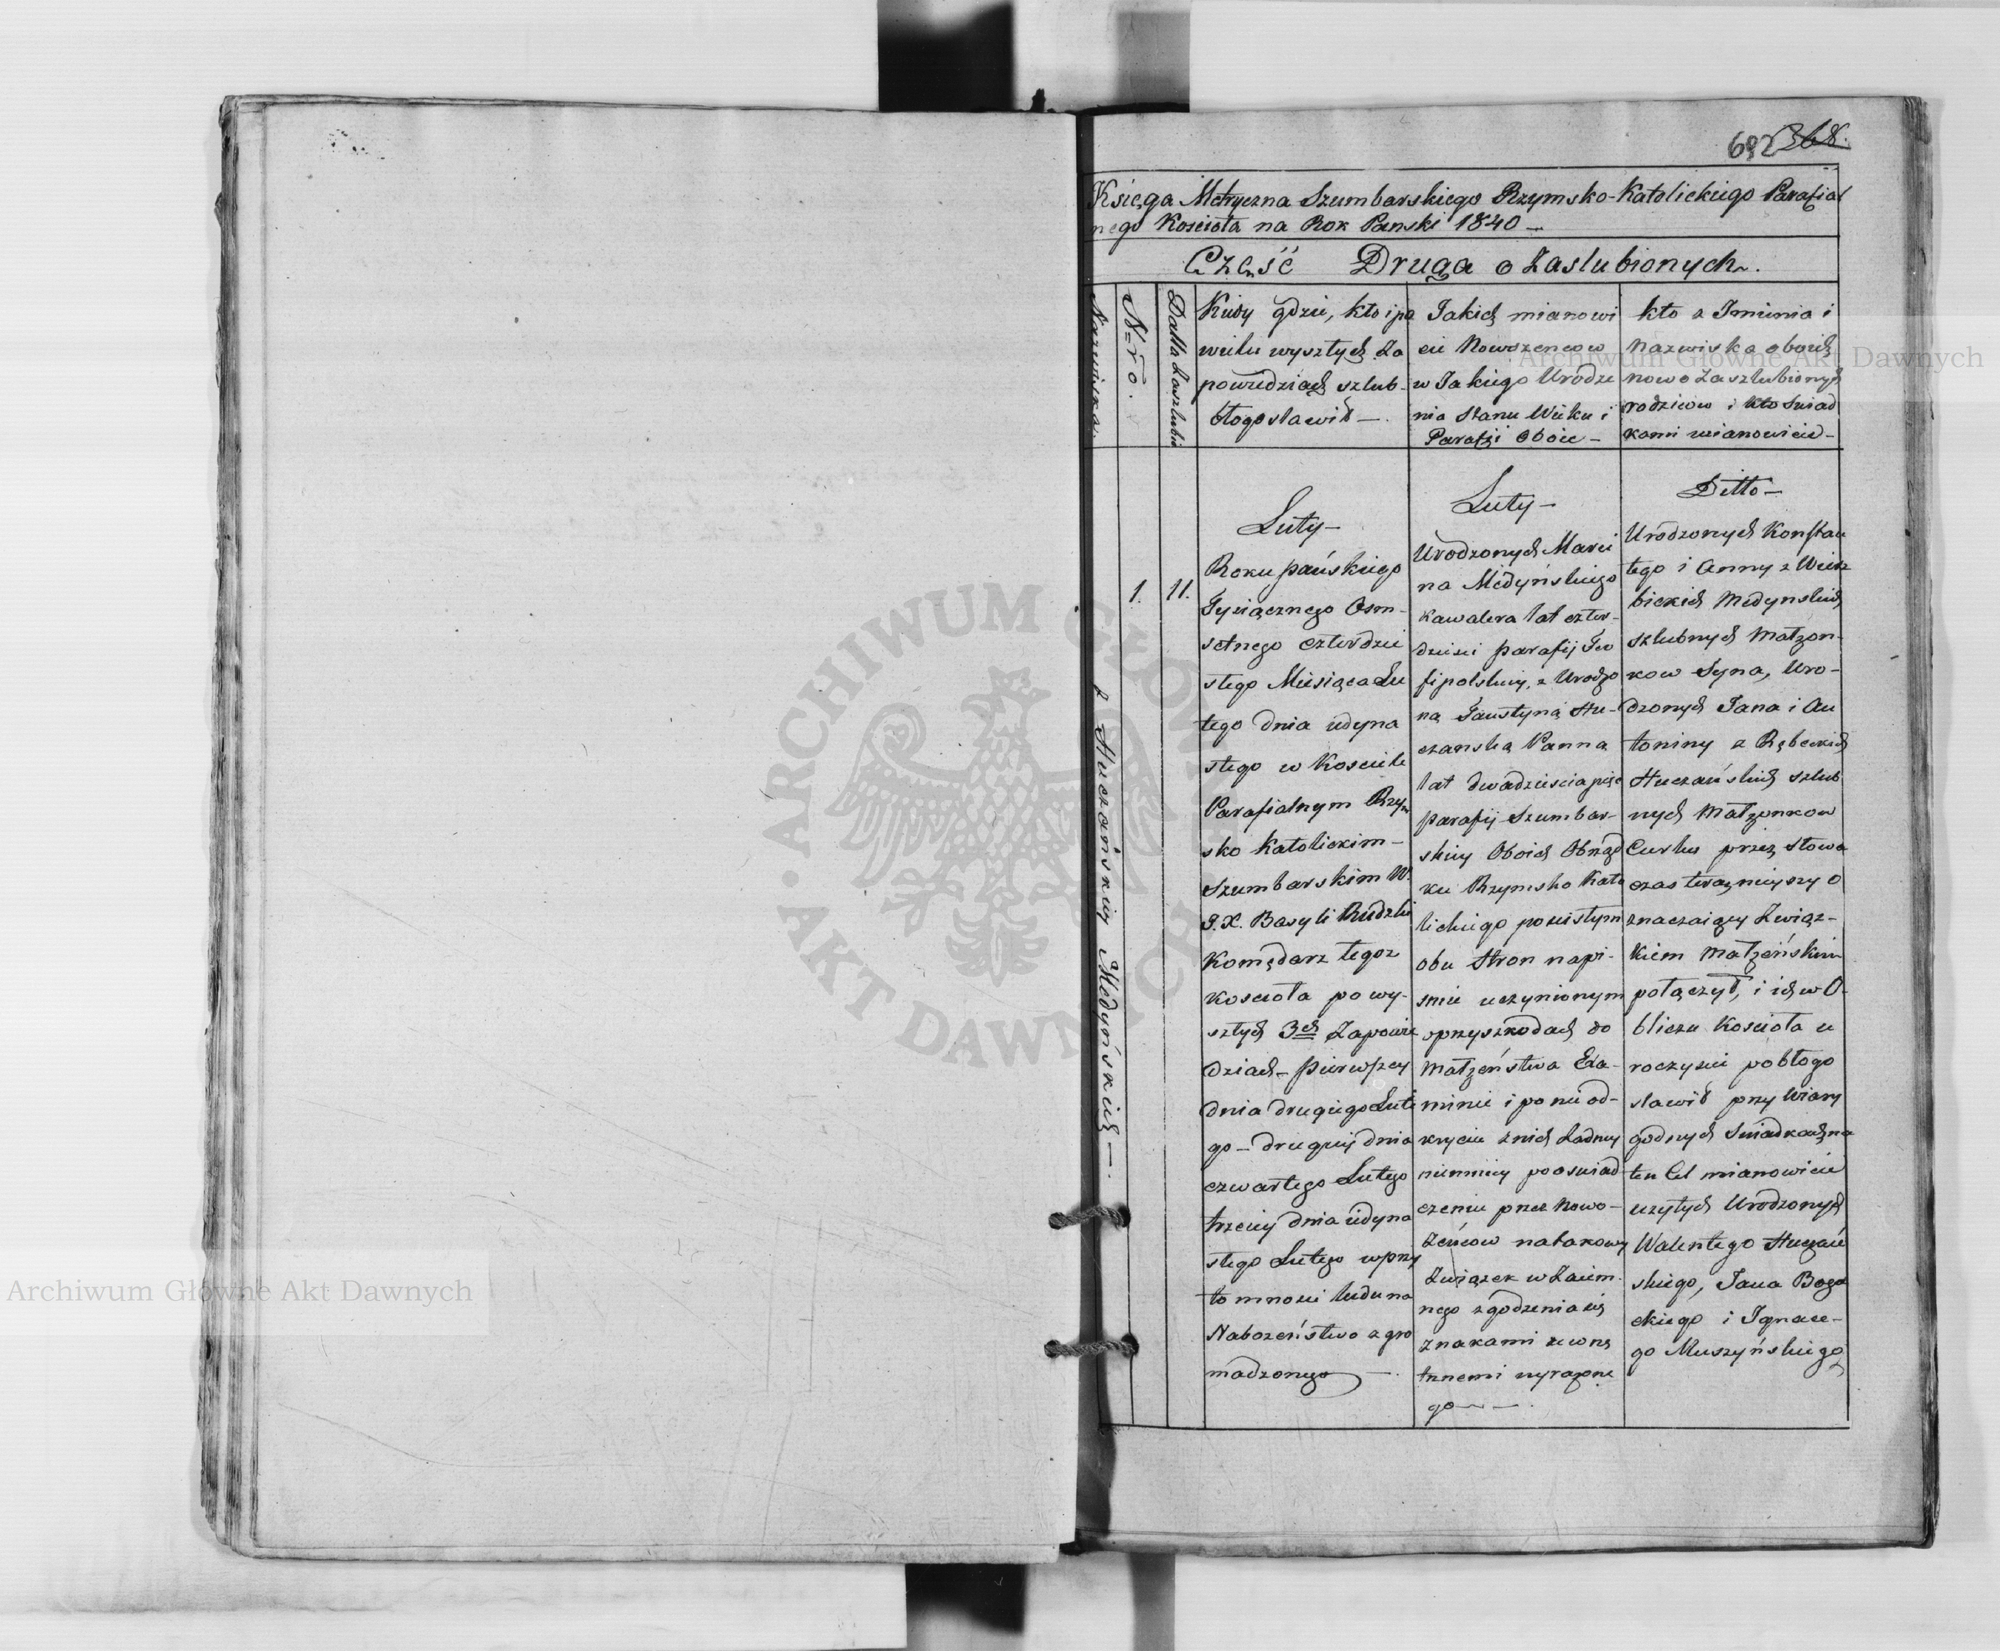 692 368.
Księga Metryczna Szumbarskiego Rzymsko-Katolickiego Parafial
nego Kościoła na Rok Panski 1840 —
Część Druga o Zaslubionych.
Nazwiska.
N-ro.
Datta Zaszlubin
Kiedy gdzie, kto i po
wielu wyszłych Za
powiedziach szlub
błogosławił —
Jakich mianowi
cie Nowozencow
w Jakiego Urodze
nia Stanu Wieku i
Parafii Oboie —
kto z Imienia i
Nazwiska oboich
nowo Zaszlubionych
rodzicow i kto Swiad
kami mianowicie —
z Huczańskiey Medyńskich —
1.
11.
Luty —
Roku pańskiego
Tysiącznego Osm-
setnego czterdzie
stego Miesiąca Lu
tego dnia iedyna
stego w Kosciele
Parafialnym Rzym
sko Katolickim —
Szumbarskim W.
J. X. Basyli Rudzki
Komędarz tegoz
Koscioła po wy-
szłych 3ch Zapowie
dziach — pierwszey
dnia drugiego Lute
go — drugiey dnia
czwartego Lutego
trzeciey dnia iedyna
stego Lutego w przy
tomnosci ludu na
Nabożeństwo zgro
madzonego —
Luty —
Urodzonych Marci
na Medyńskiego
kawalera lat czter-
dzieści parafij Teo
fipolskiey, z Urodzo
ną Faustyną Hu-
czanską Panną
lat dwadzieścia pięc
parafij Szumbar-
skiey Oboich Obrząd
ku Rzymsko Kato
lickiego po czistym
obu Stron napi-
smie uczynionym
o przyszkodach do
Małżeństwa Exa-
minie i po nie od-
kryciu z nich Zadney
niemniey po oswiad
czeniu przez Nowo-
Zeńcow na takowy
Związek w Zaiem-
nego zgodzenia się
znakami zewnę
trznemi wyrażone
go —
Ditto —
Urodzonych Konstan
tego i Anny z Wierz
bickich Medynskich
szlubnych Małżon-
kow Syna, Uro-
dzonych Jana i An
toniny z Rębeckich
Huczańskich szlub
nych Małżonkow
Curkę przez słowa
czas teraznieyszy o
znaczaiący Związ-
kiem Małżeńskim
połączył, i ich w O-
bliczu Koscioła u
roczyscie pobłogo
sławił przy Wiary
godnych Swiadkach na
ten Cel mianowicie
użytych Urodzonych
Walentego Huczań
skiego, Jana Boga
ckiego i Ignace-
go Muszyńskiego
Archiwum Główne Akt Dawnych
Archiwum Główne Akt Dawnych
· ARCHIWUM GŁÓWNE · AKT DAWNYCH